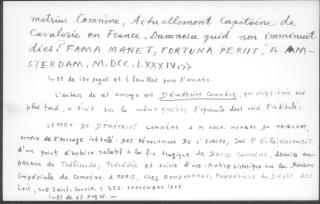 metrius Comnène, Actuellement Capitaine de
Cavalerie en France. Damnosa quid non imminuit
dies? "FAMA MANET, FORTUNA PERIIT." A AM-
STERDAM, M.DCC.LXXXIV.>>
1 feuillet pour l'errata.
L'auteur de cet ouvrage est Démétrius Comnène, qui vingt-trois ans
plus tard, a écrit sur le même l'opuscule dont voici l'intitulé:
LETTRE DE DÉMÉTRIUS COMNÈNE A M. KOCH, MEMBRE DU TRIBUNAT,
auteur de l'ouvrage intitulé: DES RÉVOLUTIONS DE L'EUROPE, sur l'éclaircissement
d'un point d'histoire relatif à la fin tragique de DAVID COMNÈNE, dernier em-
pereur de Trébizonde. Précédée et suivie d'une Notice historique sur la Maison
Impériale de COMNÈNE. A PARIS, chez RONDONNEAU, Dépôt des
Lois, rue Saint-Honoré, SEPTEMBRE
63 pages.—